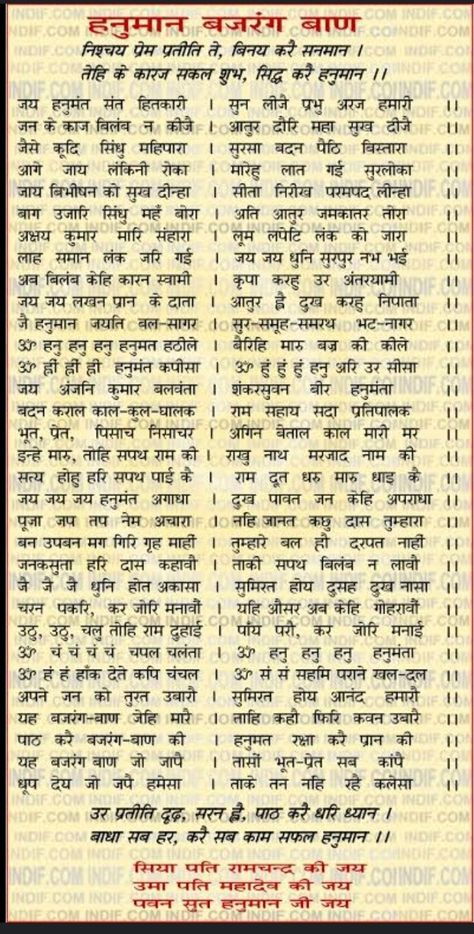 हनुमान बजरंग बाण
निश्चय प्रेम प्रतीति ते, बिनय करै सनमान ।
तेहि के कारज सकल शुभ, सिद्ध करै हनुमान ।।
जय हनुमंत संत हितकारी । सुन लीजे प्रभु अरज हमारी ।।
जन के काज बिलंब न कीजै । आतुर दौरि महा सुख दीजै ।।
जैसे कूदि सिंधु महिपारा । सुरसा बदन पैठि बिस्तारा ।।
आगे जाय लंकिनी रोका । मारेहु लात गई सुरलोका ।।
जाय बिभीषन को सुख दीन्हा । सीता निरखि परमपद लीन्हा ।।
बाग उजारि सिंधु महँ बोरा । अति आतुर जमकातर तोरा ।।
अक्षय कुमार मारि संहारा । लूम लपेटि लंक को जारा ।।
लाह समान लंक जरि गई । जय जय धुनि सुरपुर नभ भई ।।
अब बिलंब केहि कारन स्वामी । कृपा करहु उर अंतरयामी ।।
जय जय लखन प्रान के दाता । आतुर ह्वै दुख करहु निपाता ।।
जै हनुमान जयति बल-सागर । सुर-समूह-समरथ भट-नागर ।।
ॐ हनु हनु हनु हनुमत हठीले । बैरिहि मारु बज्र की कीले ।।
ॐ ह्नीं ह्नीं ह्नीं हनुमंत कपीसा । ॐ हुं हुं हुं हनु अरि उर सीसा ।।
जय अंजनि कुमार बलवंता । शंकरसुवन बीर हनुमंता ।।
बदन कराल काल-कुल-घालक । राम सहाय सदा प्रतिपालक ।।
भूत, प्रेत, पिसाच निसाचर । अगिन बेताल काल मारी मर ।।
इन्हें मारु, तोहि सपथ राम की । राखु नाथ मरजाद नाम की ।।
सत्य होहु हरि सपथ पाई कै । राम दूत धरु मारु धाइ कै ।।
जय जय जय हनुमंत अगाधा । दुख पावत जन केहि अपराधा ।।
पूजा जप तप नेम अचारा । नहि जानत कछु दास तुम्हारा ।।
बन उपबन मग गिरि गृह माहीं । तुम्हारे बल हौं दरपत नाहीं ।।
जनकसुता हरि दास कहावौ । ताकी सपथ बिलंब न लावौ ।।
जै जै जै धुनि होत अकासा । सुमिरत होय दुसह दुख नासा ।।
चरन पकरि, कर जोरि मनावौं । यहि औसर अब केहि गोहरावौं ।।
उठु, उठु, चलु तोहि राम दुहाई । पाँय परौं, कर जोरि मनाई ।।
ॐ चं चं चं चं चपल चलंता । ॐ हनु हनु हनु हनु हनुमंता ।।
ॐ हं हं हाँक देते कपि चंचल । ॐ सं सं सहमि पराने खल-दल ।।
अपने जन को तुरत उबारौ । सुमिरत होय आनंद हमारौ ।।
यह बजरंग-बाण जेहि मारै । ताहि कहौ फिरि कवन उबारै ।।
पाठ करै बजरंग-बाण की । हनुमत रक्षा करै प्रान की ।।
यह बजरंग बाण जो जापै । तासों भूत-प्रेत सब कांपै ।।
धूप देय जो जपै हमेसा । ताके तन नहि रहे कलेसा ।।
उर प्रतीति दृढ़, सरन ह्वै, पाठ करै धरि ध्यान ।
बाधा सब हर, करै सब काम सफल हनुमान ।।
सिया पति रामचन्द्र की जय
उमा पति महादेव की जय
पवन सुत हनुमान जी जय